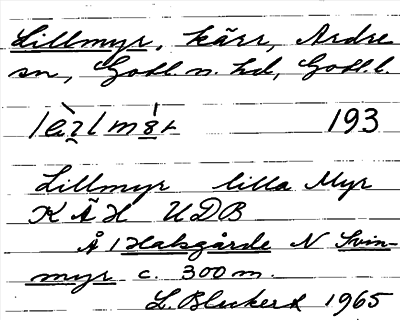 Lillmyr, kärr, Ardre
sn, Gotl. n. hd, Gotl. l.
193
Lillmyr lilla Myr
KÄH UDB
Å 1 Halsgårde N Svin-
myr c. 300 m.
L. Bleckert 1965